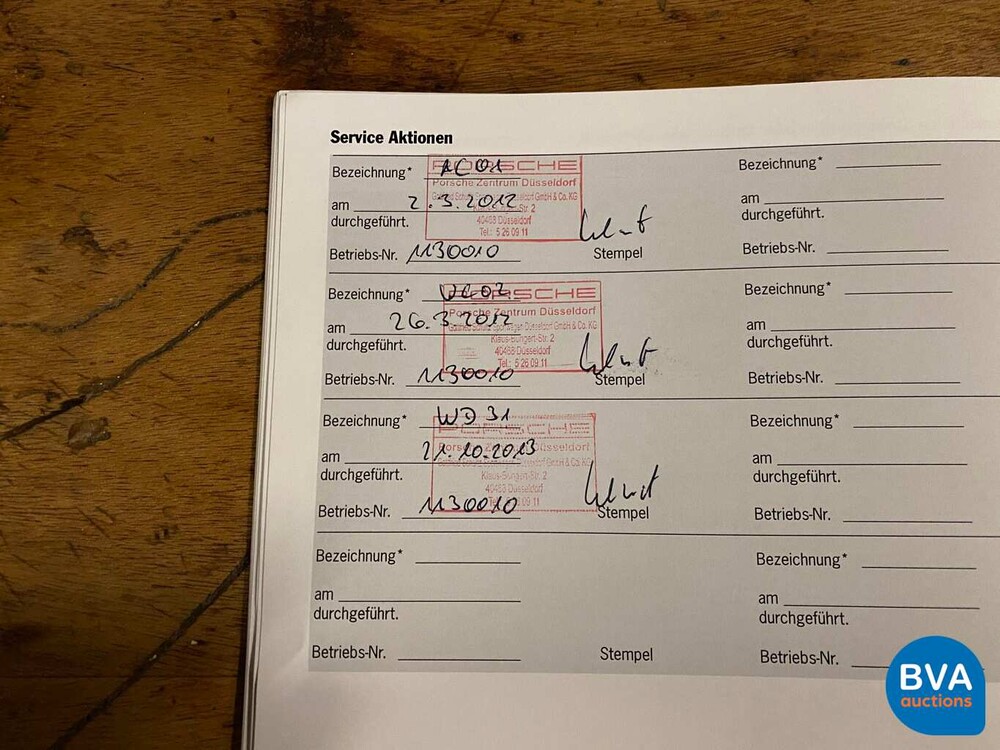 Service Aktionen
Bezeichnung* AC01
PORSCHE
Porsche Zentrum Düsseldorf
am 2.3.2012
durchgeführt.
Str. 2
40468 Düsseldorf
Tel.: 5 26 09 11
Betriebs-Nr. 1130010
Stempel
Bezeichnung*
PORSCHE
Porsche Zentrum Düsseldorf
am 26.3.2012
durchgeführt.
Klaus-Bungert-Str. 2
40468 Düsseldorf
Tel.: 5 26 09 11
Betriebs-Nr. 1130010
Stempel
Bezeichnung* WD31
PORSCHE
Porsche Zentrum Düsseldorf
am 21.10.2013
durchgeführt.
Klaus-Bungert-Str. 2
40468 Düsseldorf
Tel.: 5 26 09 11
Betriebs-Nr. 1130010
Stempel
Bezeichnung*
am
durchgeführt.
Betriebs-Nr.
Stempel
Bezeichnung*
am
durchgeführt.
Betriebs-Nr.
Bezeichnung*
am
durchgeführt.
Betriebs-Nr.
Bezeichnung*
am
durchgeführt.
Betriebs-Nr.
Bezeichnung*
am
durchgeführt.
Betriebs-Nr.
BVA
auctions